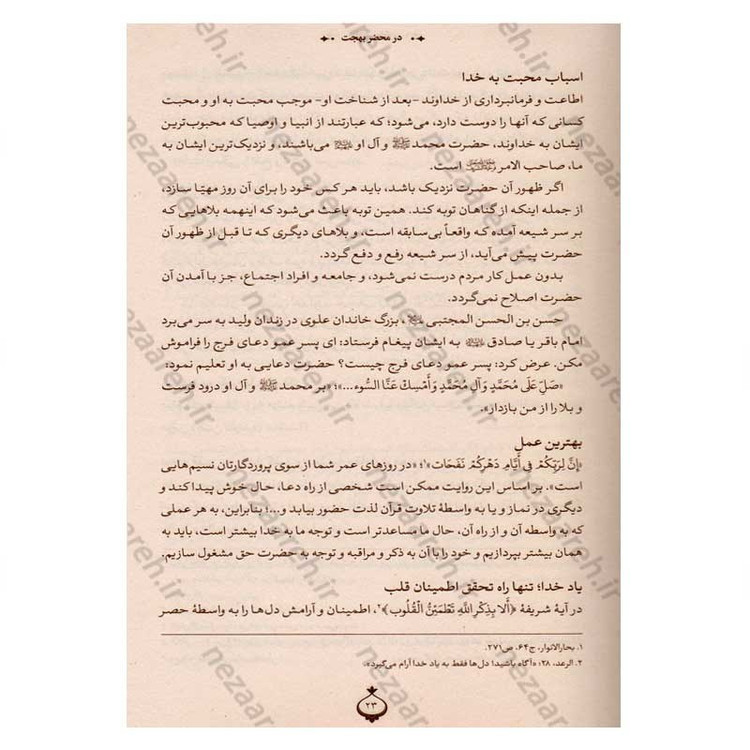 در محضر بهجت
اسباب محبت به خدا
اطاعت و فرمانبرداری از خداوند -بعد از شناخت او- موجب محبت به او و محبت
کسانی که آنها را دوست دارد، می‌شود؛ که عبارتند از انبیا و اوصیا که محبوب‌ترین
ایشان به خداوند، حضرت محمد ﷺ و آل او می‌باشند، و نزدیک‌ترین ایشان به
ما، صاحب الامر است.
اگر ظهور آن حضرت نزدیک باشد، باید هر کس خود را برای آن روز مهیّا سازد،
از جمله اینکه از گناهان توبه کند. همین توبه باعث می‌شود که اینهمه بلاهایی که
بر سر شیعه آمده که واقعاً بی‌سابقه است، و بلاهای دیگری که تا قبل از ظهور آن
حضرت پیش می‌آید، از سر شیعه رفع و دفع گردد.
بدون عمل کار مردم درست نمی‌شود، و جامعه و افراد اجتماع، جز با آمدن آن
حضرت اصلاح نمی‌گردد.
حسن بن الحسن المجتبی، بزرگ خاندان علوی در زندان ولید به سر می‌برد
امام باقر یا صادق به ایشان پیغام فرستاد: ای پسر عمو دعای فرج را فراموش
مکن. عرض کرد: پسر عمو دعای فرج چیست؟ حضرت دعایی به او تعلیم نمود:
«صَلِّ عَلَی مُحَمَّدٍ وَآلِ مُحَمَّدٍ وَأَمْسِكْ عَنَّا السُّوء...»؛ «بر محمد ﷺ و آل او درود فرست
و بلا را از من بازدار».
بهترین عمل
«إِنَّ لِرَبِّكُمْ فِي أَيَّامِ دَهْرِكُمْ نَفَحَات»۱؛ «در روزهای عمر شما از سوی پروردگارتان نسیم‌هایی
است». بر اساس این روایت ممکن است شخصی از راه دعا، حال خوش پیدا کند و
دیگری در نماز و یا به واسطهٔ تلاوت قرآن لذت حضور بیابد و...؛ بنابراین، به هر عملی
که به واسطه آن و از راه آن، حال ما مساعدتر است و توجه ما به خدا بیشتر است، باید به
همان بیشتر بپردازیم و خود را با آن به ذکر و مراقبه و توجه به حضرت حق مشغول سازیم.
یاد خدا؛ تنها راه تحقق اطمینان قلب
در آیهٔ شریفهٔ ﴿أَلا بِذِكْرِ اللَّهِ تَطْمَئِنُّ الْقُلُوب﴾۲، اطمینان و آرامش دل‌ها را به واسطهٔ حصر
۱. بحارالانوار، ج۶۴، ص۲۷۱.
۲. الرعد، ۲۸؛ «آگاه باشید! دل‌ها فقط به یاد خدا آرام می‌گیرد».
۲۳
nezaareh.ir